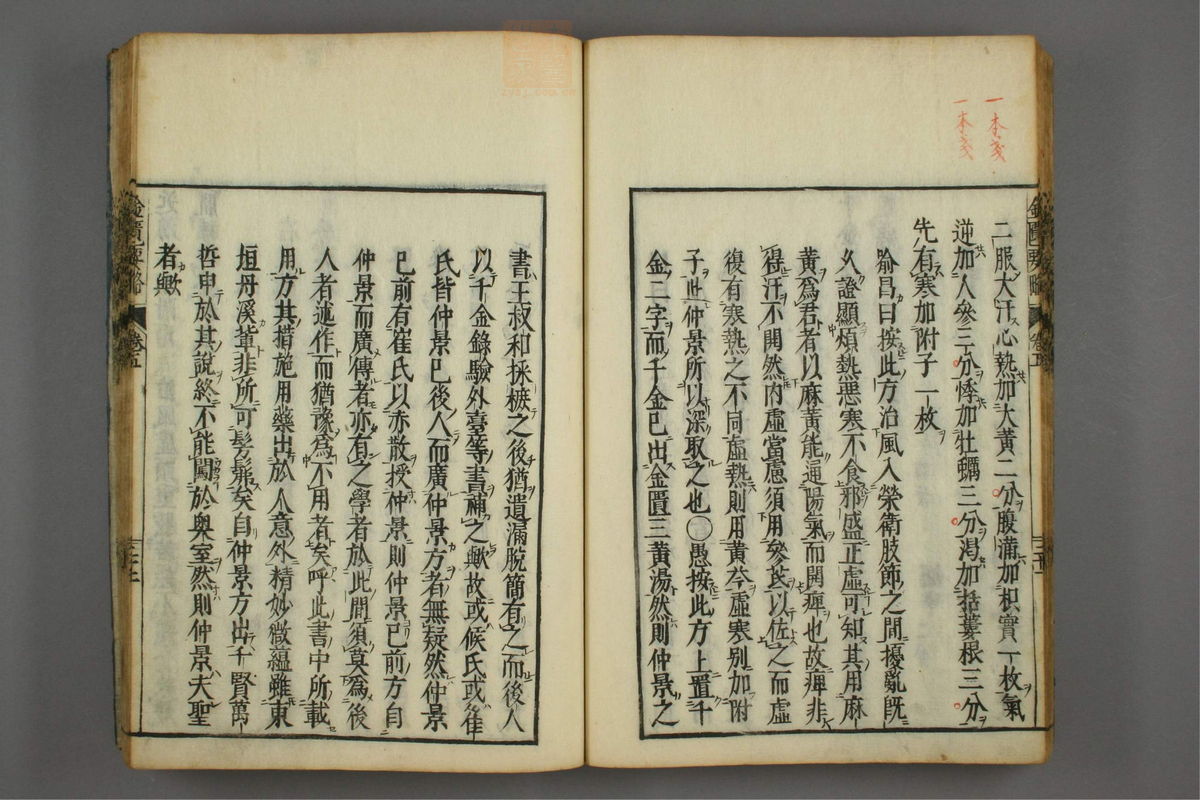 一本戔
一本戔
二服大汗心熱加大黃二分腹滿加枳實一枚氣
逆加人參三分悸加牡蠣三分渴加括蔞根三分
先有寒加附子一枚
喻昌曰按此方治風入榮衛肢節之間擾亂既
久證顯煩熱惡寒不食邪盛正虛可知其用麻
黃爲君者以麻黃能通陽氣而開痺也故痺非
得汗不開然內虛當慮須用參芪以佐之而虛
復有寒熱之不同虛熱則用黃芩虛寒別加附
子此仲景所以深取之也○愚按此方上置千
金二字而千金已出金匱三黃湯然則仲景之
書王叔和採摭之後猶遺漏脫簡有之而後人
以千金錄驗外臺等書補之歟故或候氏或崔
氏皆仲景已後人而廣仲景方者無疑然仲景
已前有崔氏以亦散授仲景則仲景已前方自
仲景而廣傳者亦有之學者於此間須莫爲後
人者述作而猶豫爲不用者矣呼此書中所載
用方其措施用藥出於人意外精妙微蘊雖東
垣丹溪輩非所可髣髴矣自仲景方出千賢萬
哲申於其說終不能闖於奧室然則仲景夫聖
者歟
金匱要略
卷五
金匱要略
卷五